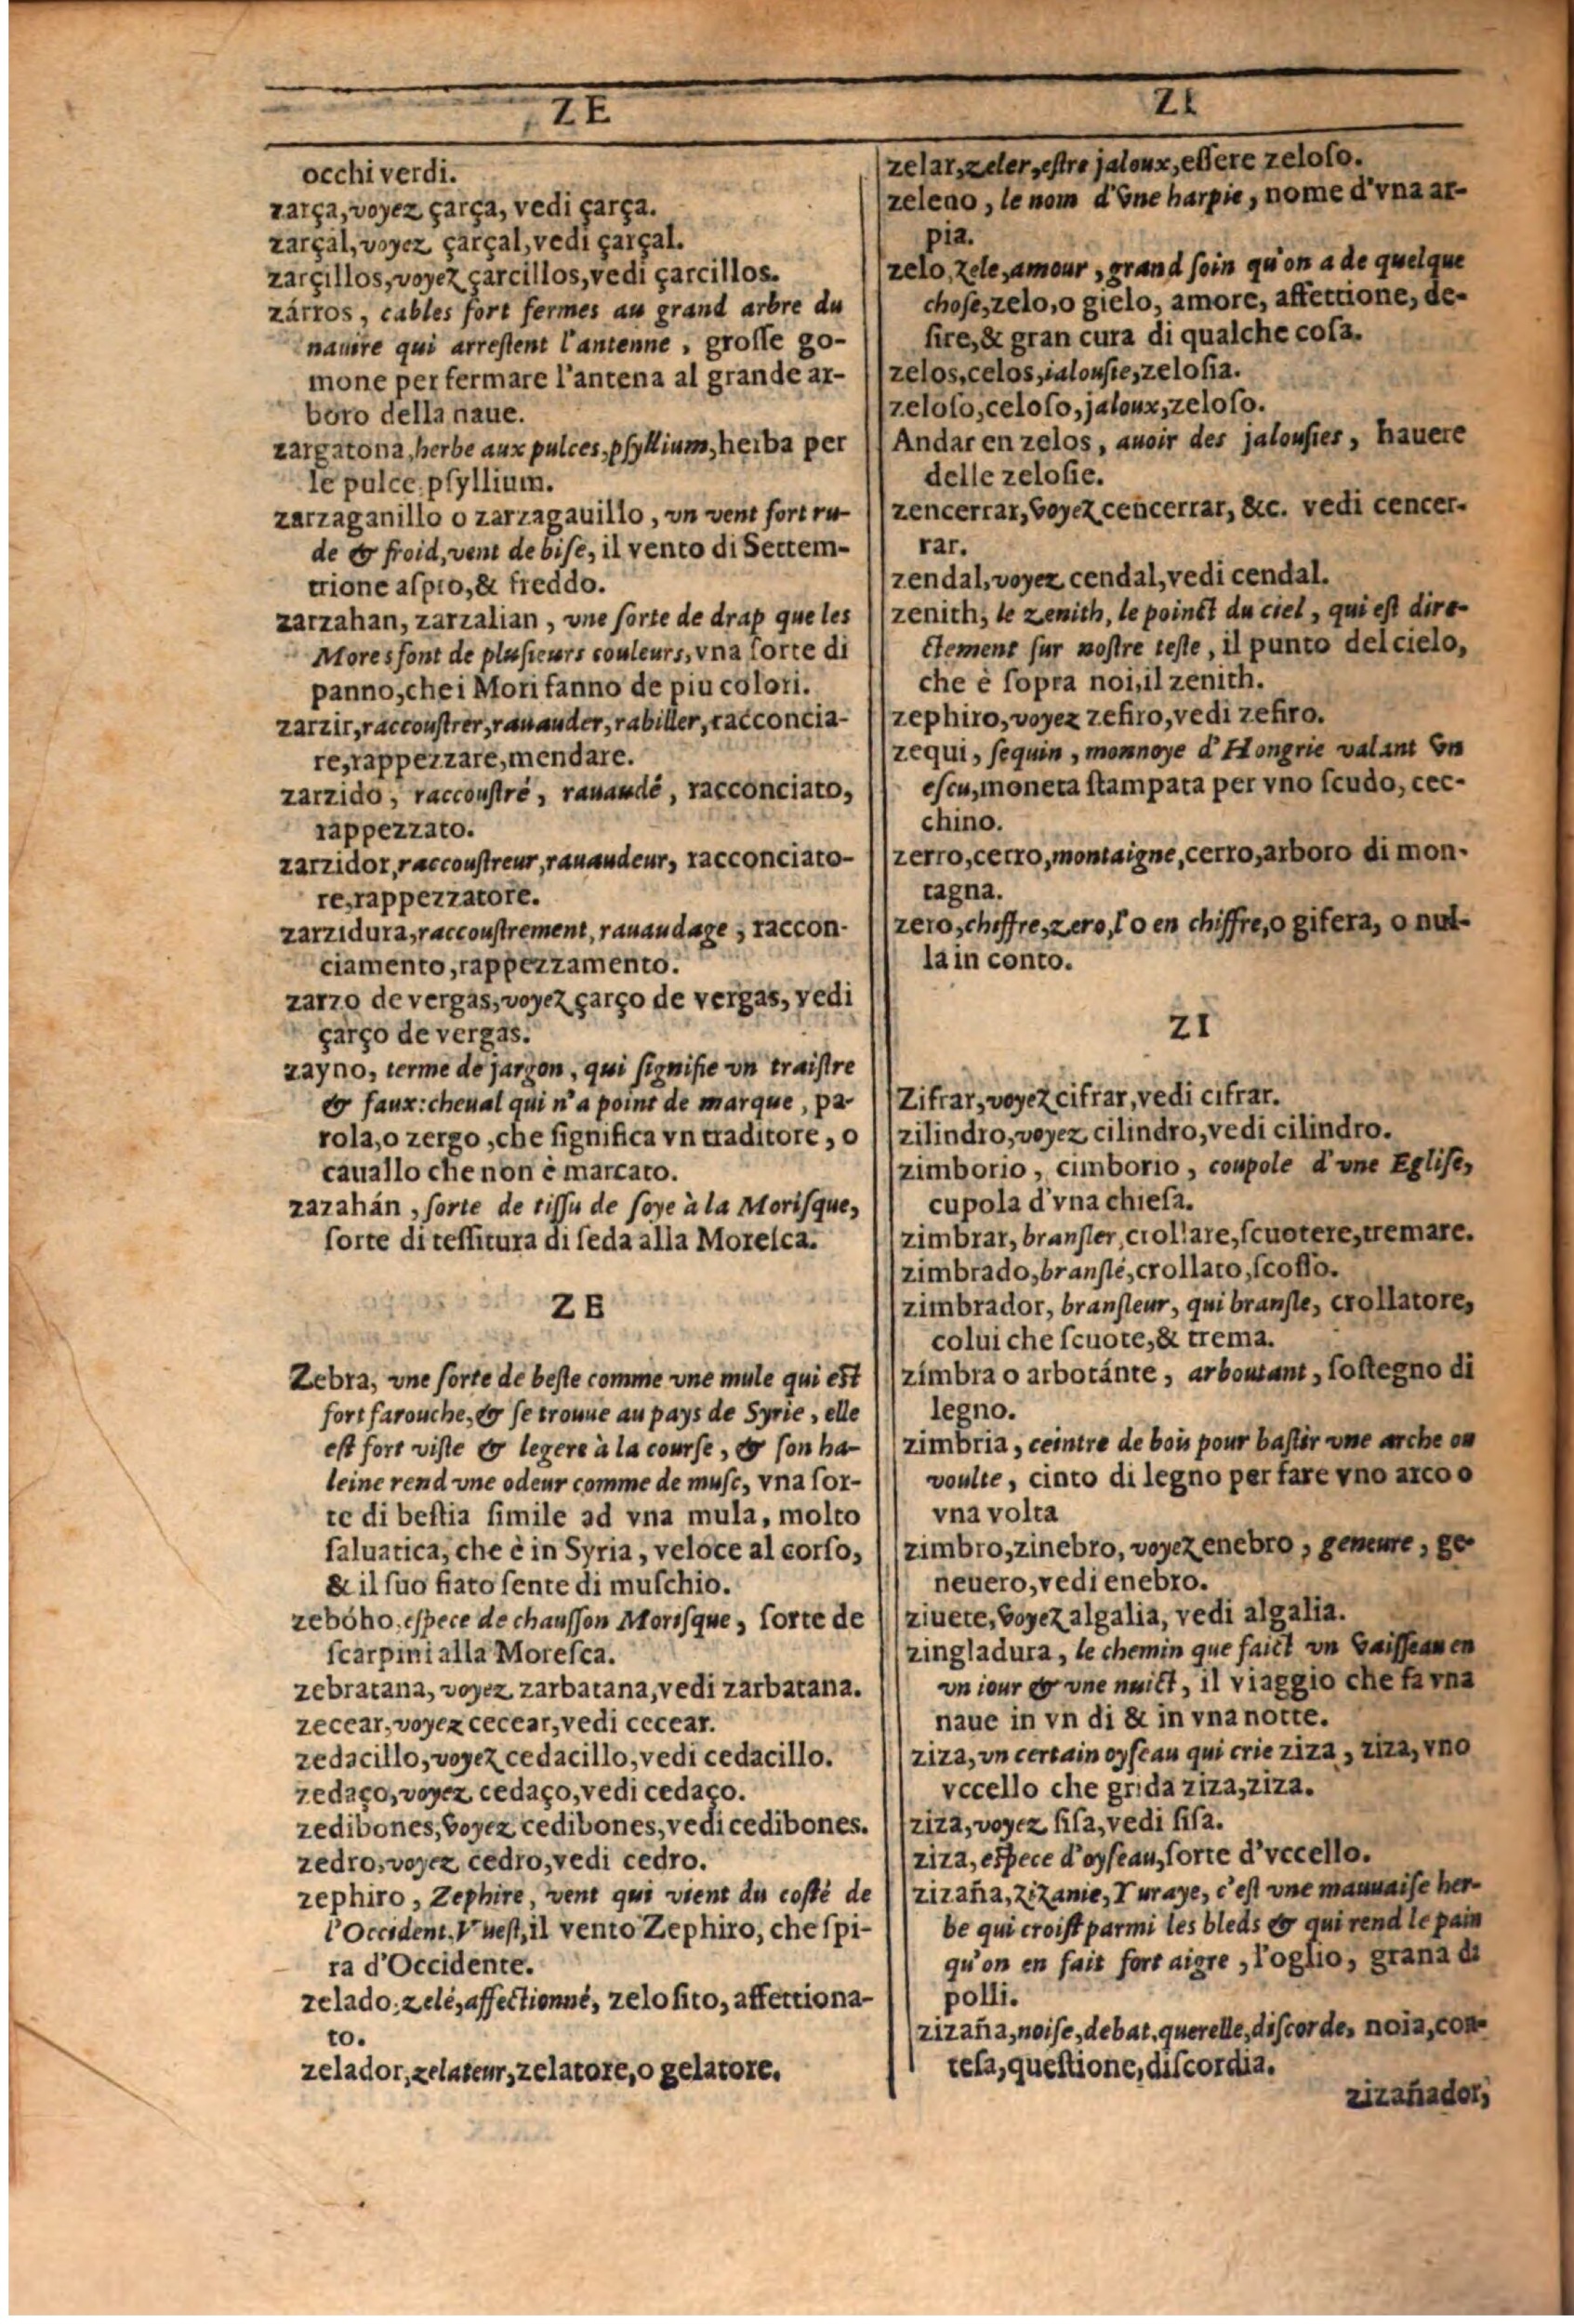 ZE
occhi verdi.
zarça, voyez çarça, vedi çarça.
zarçal, voyez çarçal, vedi çarçal.
zarçillos, voyez çarcillos, vedi çarcillos.
zárros, cables fort fermes au grand arbre du
nauire qui arrestent l'antenne, grosse go-
mone per fermare l'antena al grande ar-
boro della naue.
zargatona, herbe aux pulces, psyllium, heiba per
le pulce, psyllium.
zarzaganillo o zarzagauillo, vn vent fort ru-
de & froid, vent de bise, il vento di Settem-
trione aspro, & freddo.
zarzahan, zarzalian, vne sorte de drap que les
Mores font de plusieurs couleurs, vna sorte di
panno, che i Mori fanno de piu colori.
zarzir, raccoustrer, rauauder, rabiller, racconcia-
re, rappezzare, mendare.
zarzido, raccoustré, rauaudé, racconciato,
rappezzato.
zarzidor, raccoustreur, rauaudeur, racconciato-
re, rappezzatore.
zarzidura, raccoustrement, rauaudage, raccon-
ciamento, rappezzamento.
zarzo de vergas, voyez çarço de vergas, vedi
çarço de vergas.
zayno, terme de jargon, qui signifie vn traistre
& faux: cheual qui n'a point de marque, pa-
rola, o zergo, che significa vn traditore, o
cauallo che non è marcato.
zazahán, sorte de tissu de soye à la Morisque,
sorte di tessitura di seda alla Moresca.
ZE
Zebra, vne sorte de beste comme vne mule qui est
fort farouche, & se trouue au pays de Syrie, elle
est fort viste & legere à la course, & son ha-
leine rend vne odeur comme de musc, vna sor-
te di bestia simile ad vna mula, molto
saluatica, che è in Syria, veloce al corso,
& il suo fiato sente di muschio.
zebóho, espece de chausson Morisque, sorte de
scarpini alla Moresca.
zebratana, voyez zarbatana, vedi zarbatana.
zecear, voyez cecear, vedi cecear.
zedacillo, voyez cedacillo, vedi cedacillo.
zedaço, voyez cedaço, vedi cedaço.
zedibones, voyez cedibones, vedi cedibones.
zedro, voyez cedro, vedi cedro.
zephiro, Zephire, vent qui vient du costé de
l'Occident, Vuest, il vento Zephiro, che spi-
ra d'Occidente.
zelado, zelé, affectionné, zelosito, affettiona-
to.
zelador, zelateur, zelatore, o gelatore.
ZI
zelar, zeler, estre jaloux, essere zeloso.
zeleno, le nom d'vne harpie, nome d'vna ar-
pia.
zelo, zele, amour, grand soin qu'on a de quelque
chose, zelo, o gielo, amore, affettione, de-
sire, & gran cura di qualche cosa.
zelos, celos, ialousie, zelosia.
zeloso, celoso, jaloux, zeloso.
Andar en zelos, auoir des jalousies, hauere
delle zelosie.
zencerrar, voyez cencerrar, &c. vedi cencer-
rar.
zendal, voyez cendal, vedi cendal.
zenith, le zenith, le poinct du ciel, qui est dire-
ctement sur nostre teste, il punto del cielo,
che è sopra noi, il zenith.
zephiro, voyez zefiro, vedi zefiro.
zequi, sequin, monnoye d'Hongrie valant vn
escu, moneta stampata per vno scudo, cec-
chino.
zerro, cerro, montaigne, cerro, arboro di mon-
tagna.
zero, chiffre, zero, l'o en chiffre, o gifera, o nul-
la in conto.
ZI
Zifrar, voyez cifrar, vedi cifrar.
zilindro, voyez cilindro, vedi cilindro.
zimborio, cimborio, coupole d'vne Eglise,
cupola d'vna chiesa.
zimbrar, bransler, crollare, scuotere, tremare.
zimbrado, branslé, crollato, scosso.
zimbrador, bransleur, qui bransle, crollatore,
colui che scuote, & trema.
zímbra o arbotánte, arboutant, sostegno di
legno.
zimbria, ceintre de bois pour bastir vne arche ou
voulte, cinto di legno per fare vno arco o
vna volta
zimbro, zinebro, voyez enebro, geneure, ge-
neuero, vedi enebro.
ziuete, voyez algalia, vedi algalia.
zingladura, le chemin que faict vn vaisseau en
vn iour & vne nuict, il viaggio che fa vna
naue in vn di & in vna notte.
ziza, vn certain oyseau qui crie ziza, ziza, vno
vccello che grida ziza, ziza.
ziza, voyez sisa, vedi sisa.
ziza, espece d'oyseau, sorte d'vccello.
zizaña, zizanie, Yuraye, c'est vne mauuaise her-
be qui croist parmi les bleds & qui rend le pain
qu'on en fait fort aigre, l'oglio, grana di
polli.
zizaña, noise, debat, querelle, discorde, noia, con-
tesa, questione, discordia.
zizañador,